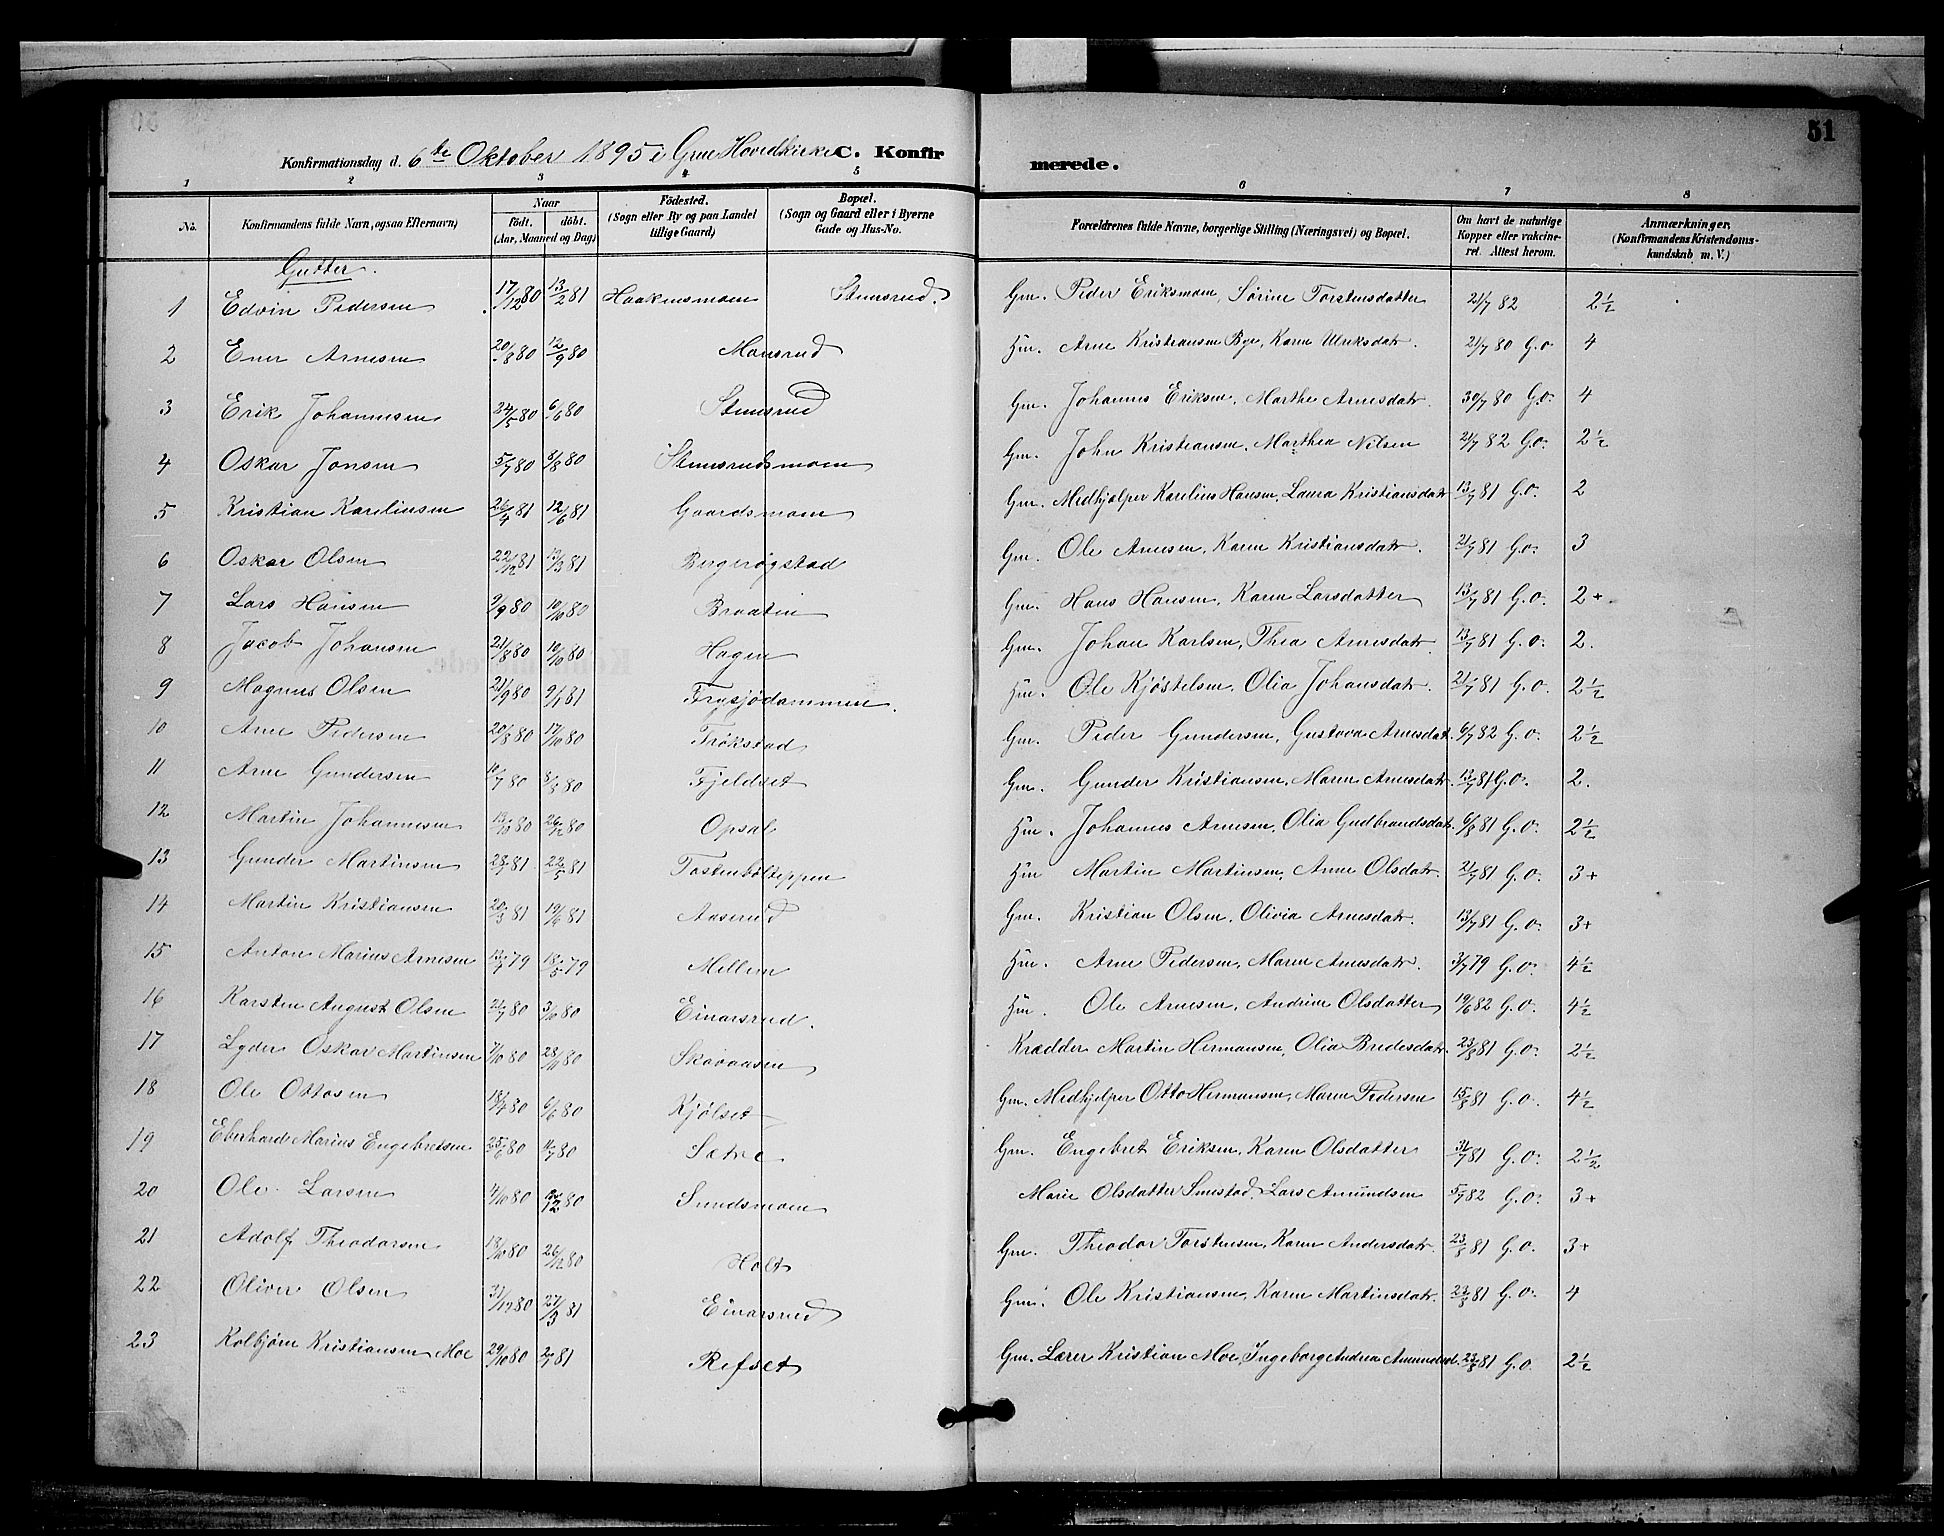 51
Konfirmationsdag d. 6te Oktober 1895 i Grue Hovedkirke C. Konfirmerede.
1 2 3 4 5 6 7 8
No. Konfirmandens fulde Navn, ogsaa Efternavn) Naar født. døbt. (Aar, Maaned og Dag) Födested. (Sogn eller By og paa Landet tillige Gaard) Bopæl. (Sogn og Gaard eller i Byerne Gade og Hus-No. Forældrenes fulde Navne, borgerlige Stilling (Næringsvei) og Bopæl. Om havt de naturlige Kopper eller vakcineret. Attest herom. Anmærkninger. (Konfirmandens Kristendomskundskab m. V.)
Gutter.
1 Edvin Pedersen 17/12 80 13/2 81 Haakensmoen Stemsrud. Gm. Peder Eriksmoen, Sørine Torstensdatter 21/7 82 2½
2 Ener Arnesen 20/8 80 12/9 80 Monsrud Hm. Arne Kristiansen Bye, Karen Ulriksdatr. 21/7 80 G.o. 4
3 Erik Johannesen 24/5 80 6/6 80 Stemsrud Gm. Johannes Eriksen, Marthe Arnesdatr. 30/7 80 G.o. 4
4 Oskar Jonsen 5/7 80 8/8 80 Stemsrudsmoen Gm. John Kristiansen, Marthea Nilsen 21/7 82 G.o. 2½
5 Kristian Kareliusen 26/4 81 12/6 81 Gaardsmoen Gm. Medhjælper Karelius Hansen, Laura Kristiansdatr 13/7 81 G.o. 2
6 Oskar Olsen 22/12 81 13/3 81 Bergerøgstad Gm. Ole Arnesen, Karen Kristiansdatr. 21/7 81 G.o. 3
7 Lars Hansen 9/9 80 10/10 80 Braaten Gm. Hans Hansen, Karen Larsdatter 13/7 81 G.o. 2+
8 Jacob Johansen 21/8 80 10/10 80 Hagen Gm. Johan Karlsen, Thea Arnesdatr. 13/7 81 G.o. 2.
9 Magnus Olsen 21/9 80 9/1 81 Frysjödammen. Hm. Ole Kjöstelsen, Olia Johansdatr. 21/7 81 G.o. 2½
10 Arne Pedersen 20/8 80 17/10 80 Frökstad Gm. Peder Gundersen, Gustava Arnesdat. 6/7 82 G.o. 2½
11 Arne Gundersen 10/7 80 8/8 80 Fjeldset Gm. Gunder Kristiansen, Maren Arnesdatr. 13/7 81 G.o. 2.
12 Martin Johannesen 13/10 80 26/12 80 Opsal Hm. Johannes Arnesen, Olia Gudbrandsdatr. 6/8 81 G.o. 2½
13 Gunder Martinsen 81. 22/5 81 Hm Martin Martinsen, Anne Olsdatr. 21/7 81 G.o. 3+
14 Martin Kristiansen 20/3 81 19/6 81 Aaserud Gm. Kristian Olsen, Olivia Arnesdatr. 13/7 81 G.o. 3+
15 Anton Marius Arnesen 13/4 79 18/5 79 Mellem Hm. Arne Pedersen, Maren Arnesdatr. 3/7 79 G.o. 4½
16 Karsten August Olsen 21/7 80 3/10 80 Einarsrud. Hm. Ole Arnesen, Andrine Olsdatter 19/6 82 G.o. 4½
17 Lyder Oskar Martinsen 7/10 80 28/11 80 Skavaasen Krædder Martin Hermansen, Olia Bredesdatr. 23/8 81 G.o. 2½
18 Ole Ottosen 18/4 80 6/6 80 Kjölset Gm. Medhjelper Otto Hermansen, Maren Pedersen 15/8 81 G.o. 4½
19 Eberhard Marius Engebretsen 25/6 80 11/7 80 Sætre Gm. Engebret Eriksen, Karen Olsdatter 31/7 81 G.o. 2½
20 Ole Larsen 4/10 80 80 Sundsmoen Marie Olsdatter Smestad, Lars Amundsen 5/7 82 G.o. 3+
21 Adolf Theodorsen 18/10 80 26/12 80 Holt Gm. Theodor Torstensen, Karen Andersdatr. 23/8 81 G.o. 3+
22 Oliver Olsen 31/12 80 27/3 81 Einarsrud Gm. Ole Kristiansen, Karen Martinsdatr. 23/8 81 G.o. 4
23 Kolbjørn Kristiansen Moe 29/10 80 2/1 81 Refset Gm. Lærer Kristian Moe, Ingeborg Andrea 23/8 81 G.o. 2½